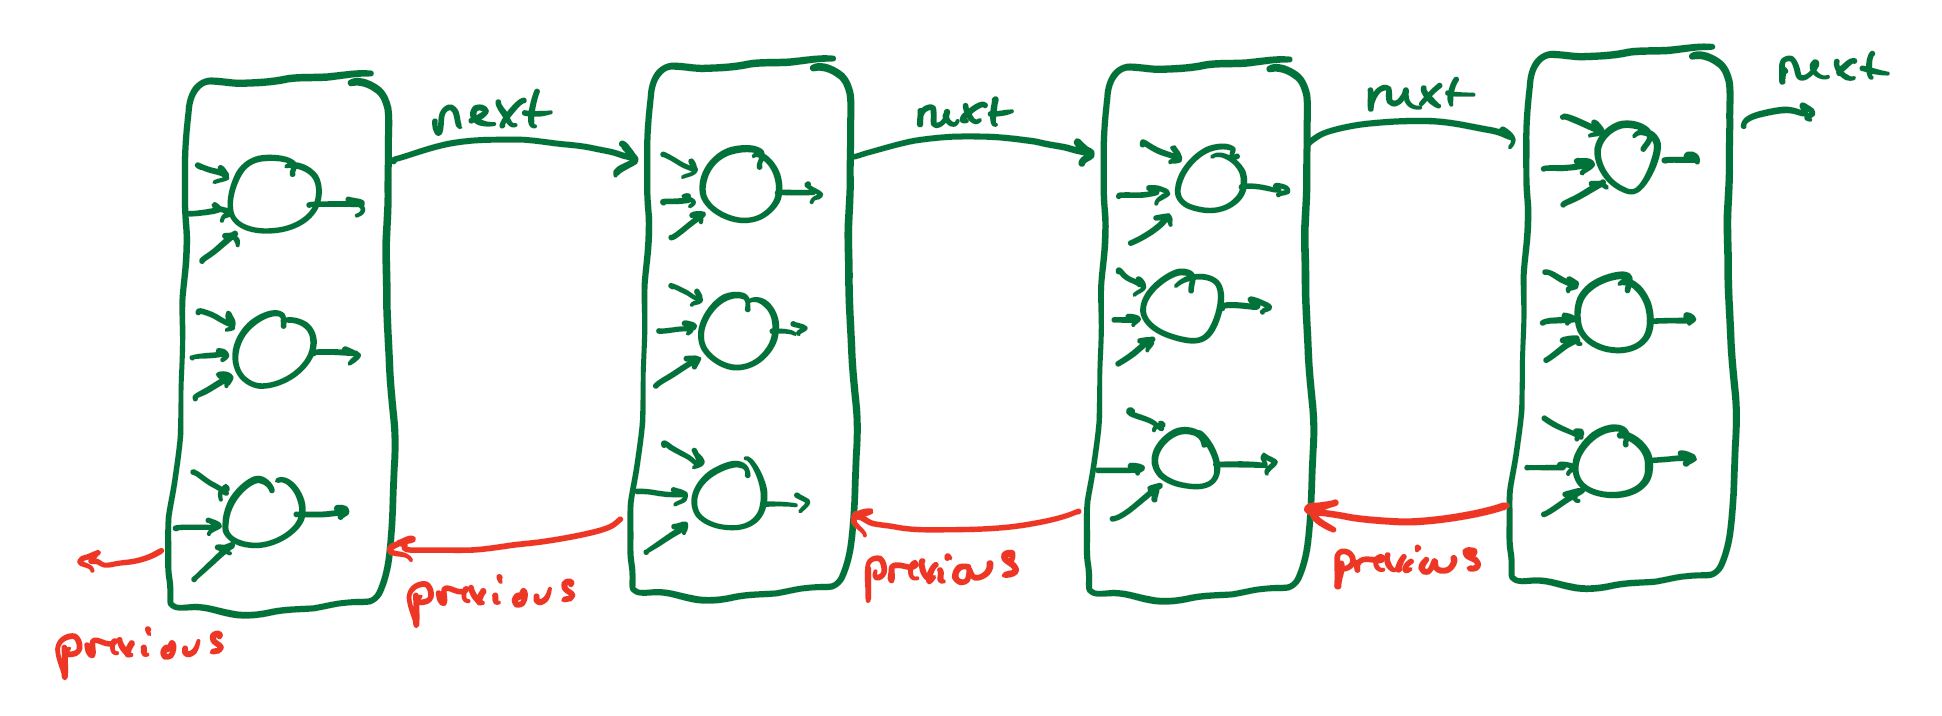 next
next
next
next
previous
previous
previous
previous